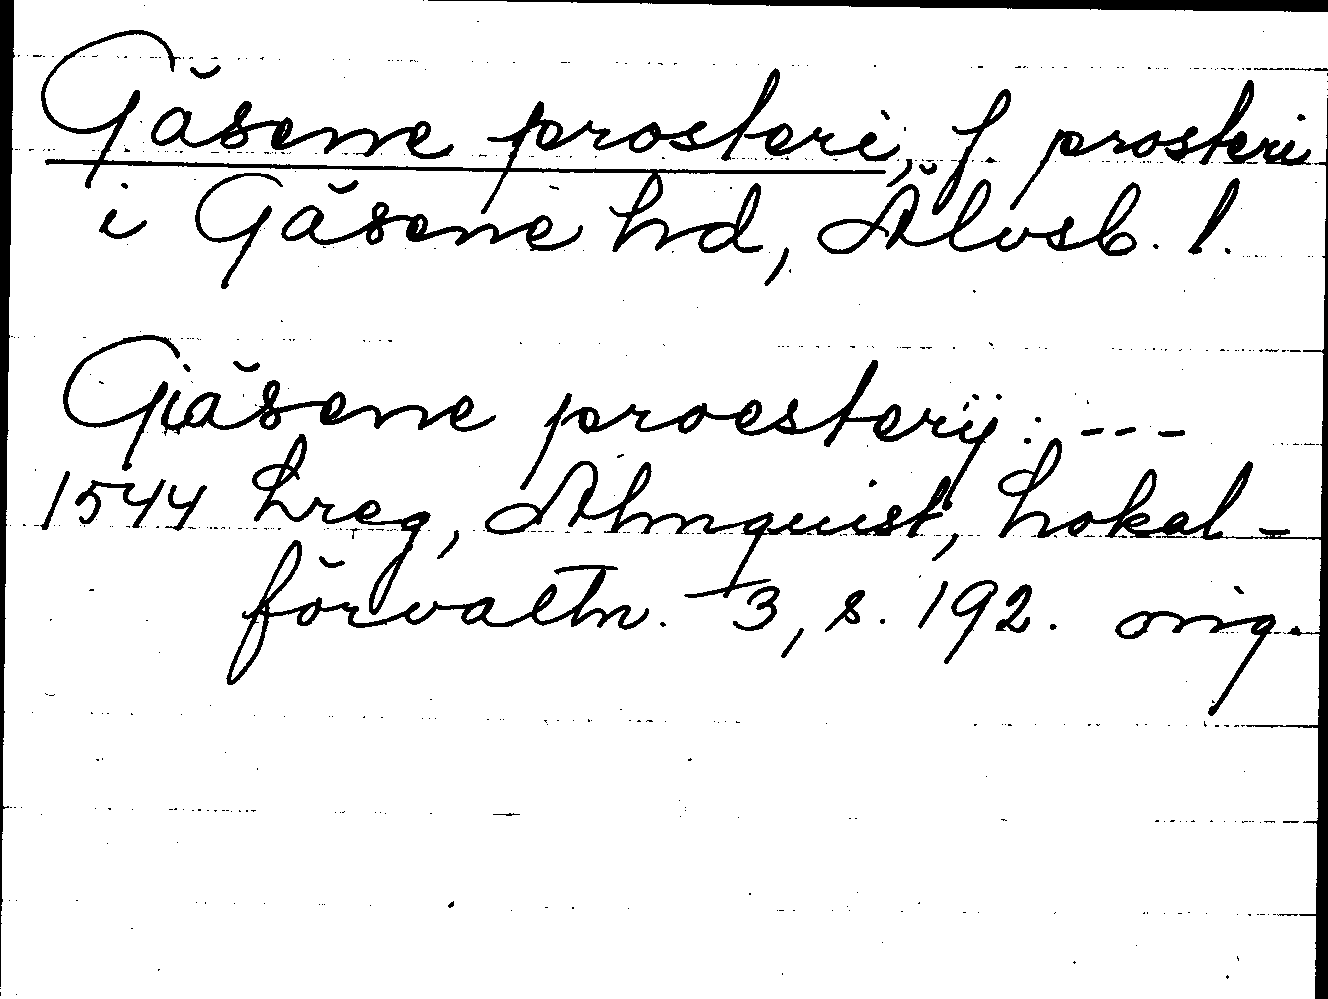 Gäsene prosteri, f. prosteri
i Gäsene hd, Älvsb. l.
Giäsene proesterij: ---
1544 Lreg, Almquist, Lokal-
förvaltn. 3, s. 192. orig.